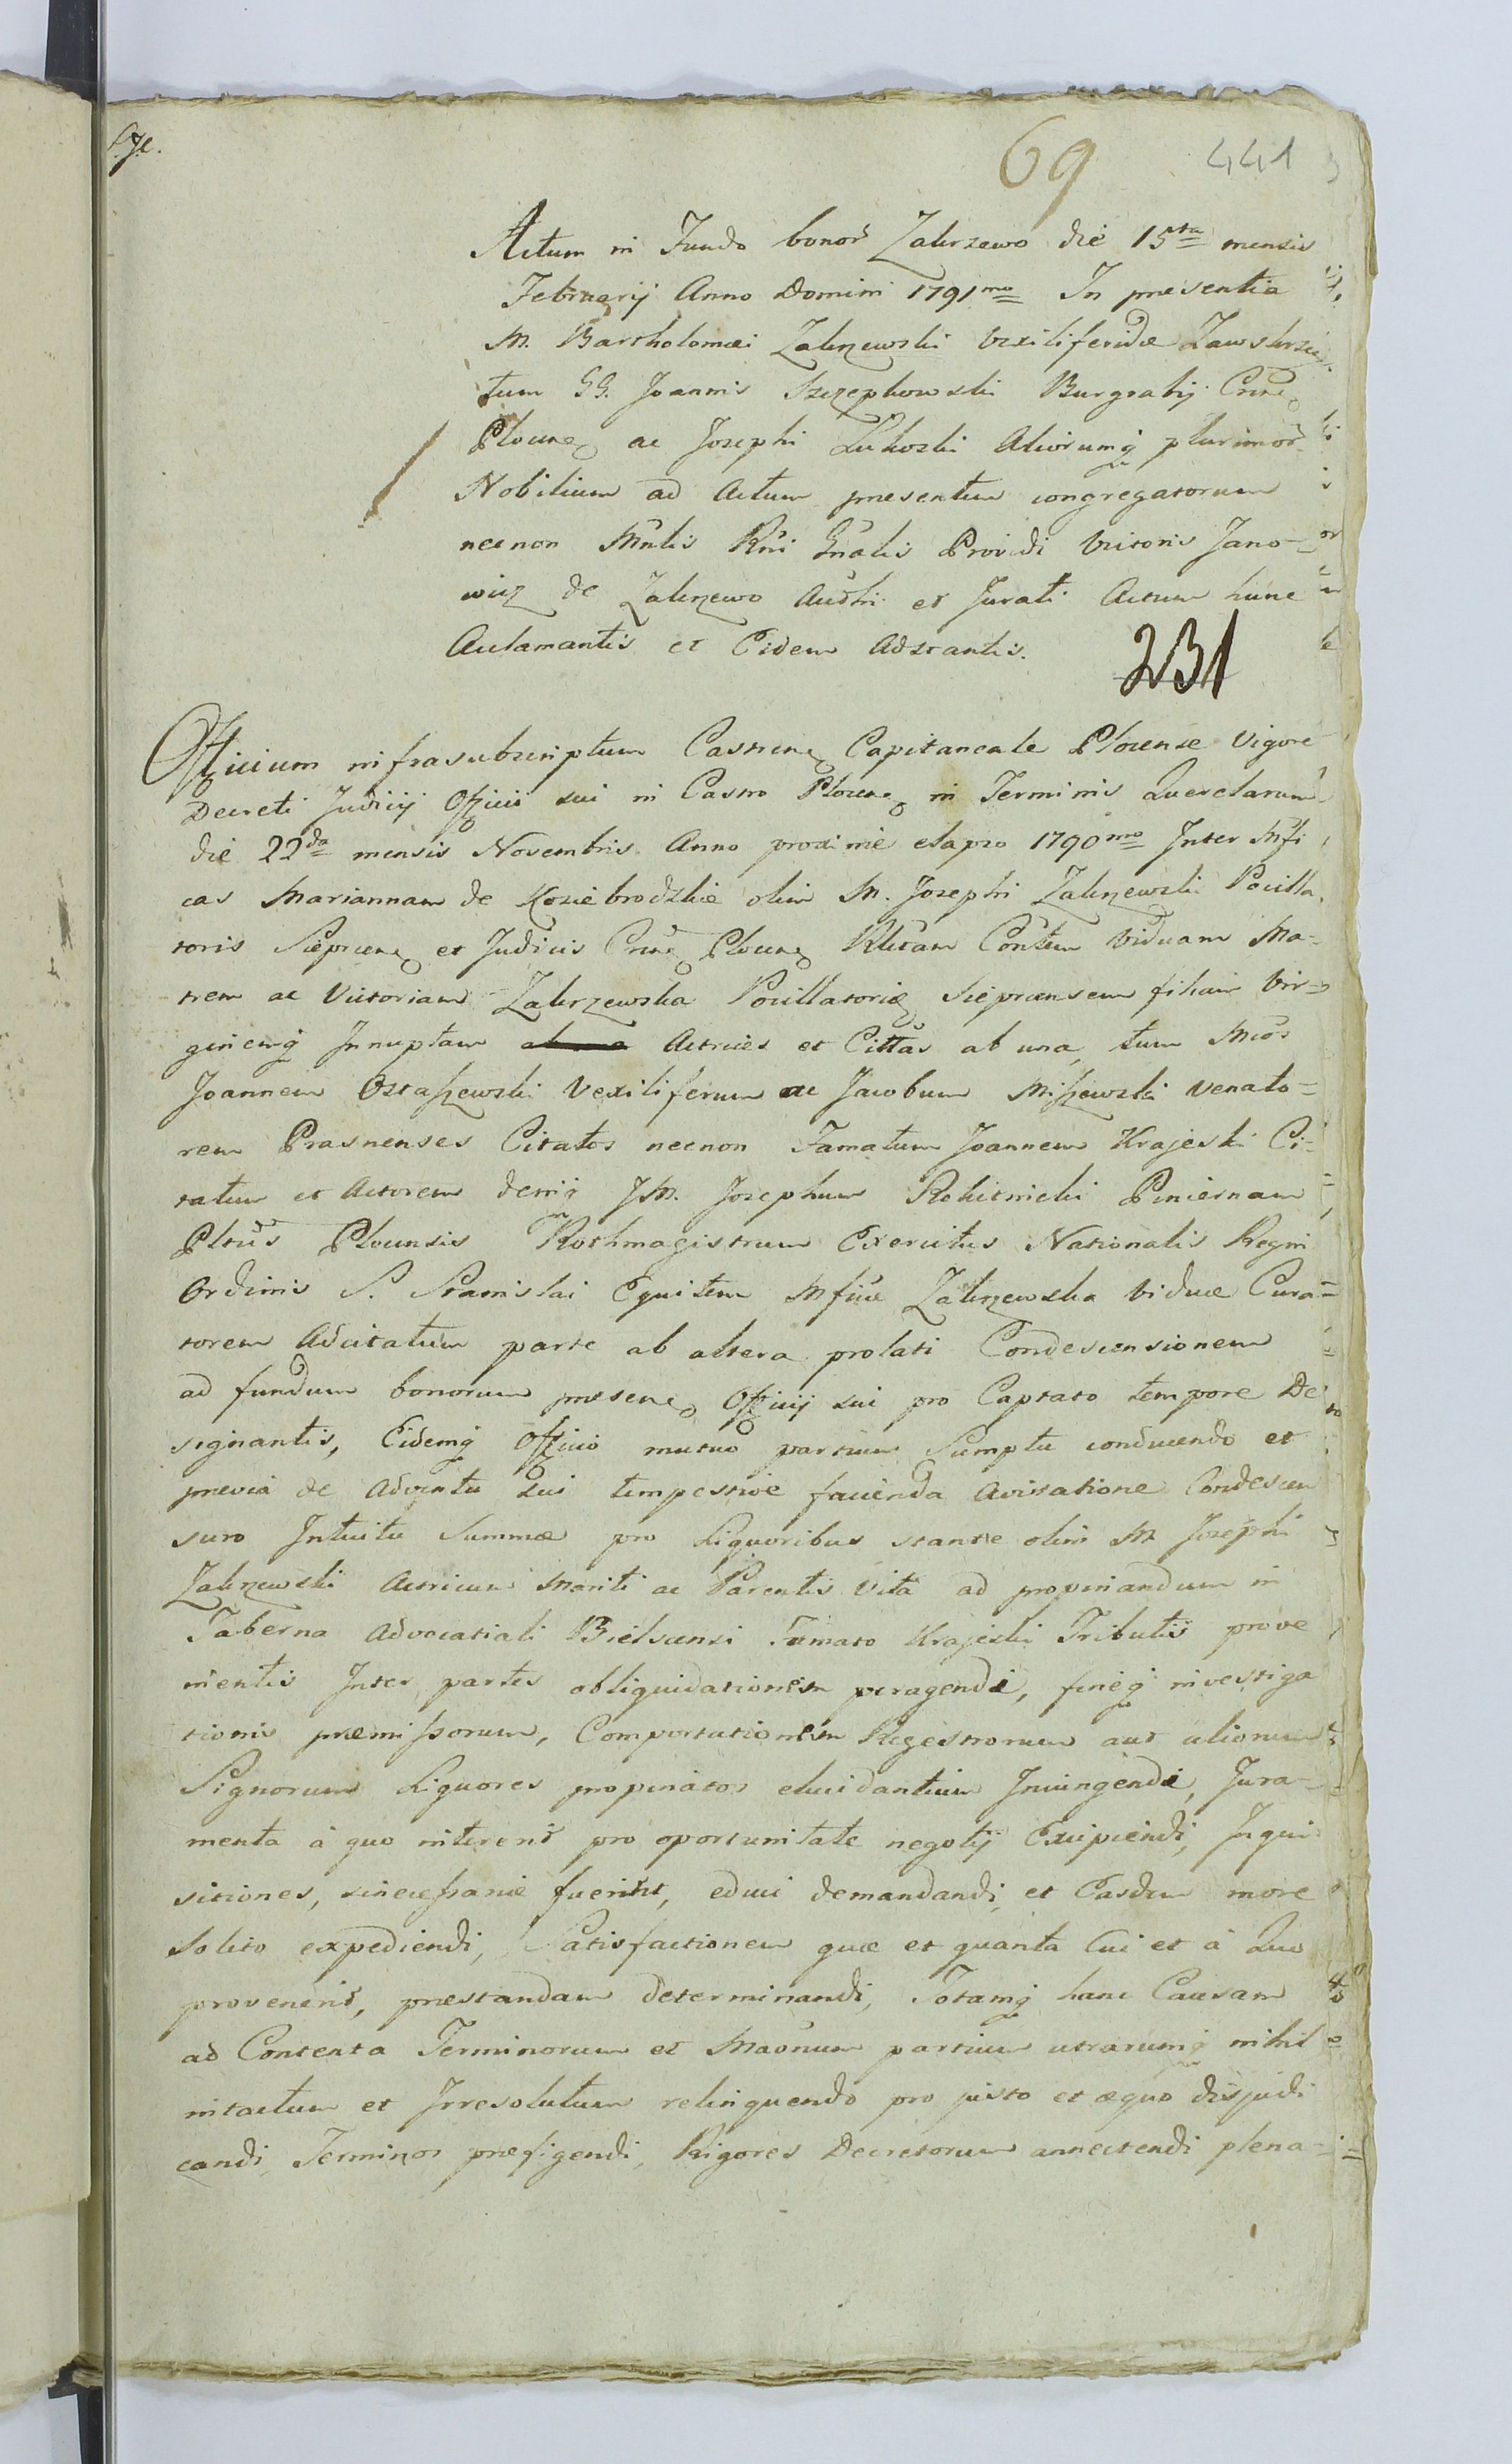 69 441
Actum in Fundo bonor̃ Zakrzewo die 15ta mensis
Februarij Anno Domini 1791mo In presentia
M. Bartholomæi Zakrzewski Vexiliferidæ Zawskrzń
tum GG. Joannis Szczepkowski Burgrabij
Plocen̨ ac Josephi Lukoski Aliorumq̨ plurimor̃
Nobilium ad Actum presentem congregatorum
necnon Mñlis Rñi Gñalis Providi Victoris Jano-
wicz de Zakrzewo Auth̃i et Jurati Actum hunc
Aclamantis et Eidem Adstantis.
231
Officium infrasubscriptum Castren̨ Capitaneale Plocense Vigore
Decreti Judicij Officii sui in Castro Plocen̨ in Terminis Querelarum
die 22da mensis Novembris Anno proxime elapso 1790mo Inter Mfi
cas Mariannam de Koziebrodzkie olim M. Josephi Zakrzewski Pocilla
toris Sieprcen̨ et Judicis Plocen̨ Rlictam Viduam Ma-
trem ac Victoriam Zakrzewska Pocillatoriæ Sieprcensem filiam Vir-
ginemq̨ Innuptam Actrices et Cittas ab una, tum Mcos
Joannem Ostaszewski Vexiliferum ac Jacobum Miszewski Venato=
rem Prasnenses Citatos necnon Famatum Joannem Krajeski Ci-
tatum et Actorem deniq̨ JM. Josephum Rokitnicki Pincernam
Pltũs Plocensis Rothmagistrum Exercitus Nationalis Regni
Ordinis S. Stanislai Equitem Mficæ Zakrzewska Viduæ Cura=
torem Adcitatum parte ab altera prolati Condescensionem
ad fundum bonorum presen̨ Officij sui pro Captato tempore De
signantis, Eidemq̨ Officio mutuo partium Sumptu conducendo et
previa de Adventu sui tempestive facienda Avisatione Condescen
suro Intuitu Summæ pro Liquoribus stante olim M. Josephi
Zakrzewski Actricum Mariti ac Parentis Vita ad propinandum in
Taberna Advocatiali Bielscensi Famato Krajeski Tributis prove
nientis Inter partes obliquidationem peragendi, fineq̨ investiga
tionis præmissorum, Comportationem Regestrorum aut aliorum
Signorum Liquores propinatos elucidantium Injungendi, Jura-
menta á quo intererit pro oportunitate negotij Excipiendi, Inqui
sitiones, si necessariæ fuerint, educi demandandi, et Easdem more
Solito expediendi, Satisfactionem quæ et quanta Cui et á Quo
provenerit, præstandam determinandi, Totamq̨ hanc Causam
ad Contenta Terminorum et partium utrarumq̨ nihil
intactum et Irresolutum relinquendo pro justo et æquo disjudi
candi, Terminos præfigendi, Rigores Decretorum annectendi plena-